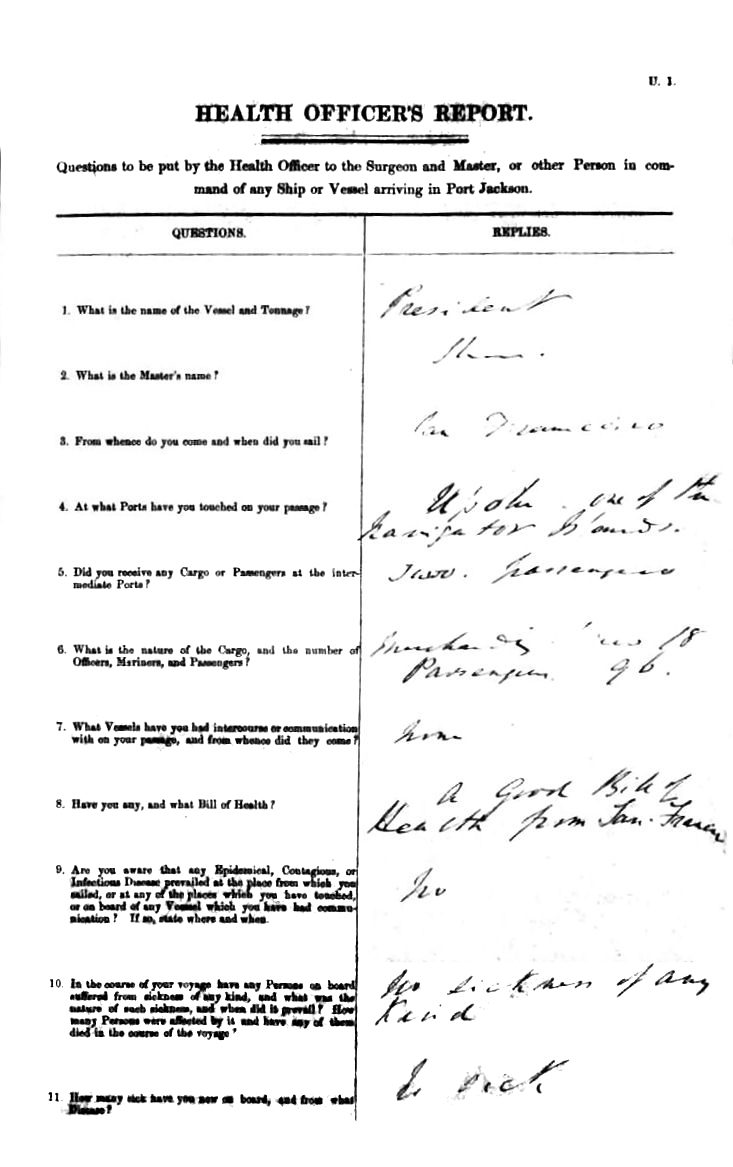 U. 1.
HEALTH OFFICER'S REPORT.
Questions to be put by the Health Officer to the Surgeon and Master, or other Person in com-
mand of any Ship or Vessel arriving in Port Jackson.
QUESTIONS.
REPLIES.
1. What is the name of the Vessel and Tonnage?
President
2. What is the Master's name?
3. From whence do you come and when did you sail?
San Francisco
4. At what Ports have you touched on your passage?
Upolu. one of the
Navigator Islands.
5. Did you receive any Cargo or Passengers at the inter-
mediate Ports?
Two. passengers
6. What is the nature of the Cargo, and the number of
Officers, Mariners, and Passengers?
18
Passengers 96.
7. What Vessels have you had intercourse or communication
with on your passage, and from whence did they come?
None
8. Have you any, and what Bill of Health?
A Good Bill of
Health from San. Francis
9. Are you aware that any Epidemical, Contagious, or
Infectious Disease prevailed at the place from which you
sailed, or at any of the places which you have touched,
or on board of any Vessel which you have had commu-
nication? If so, state where and when.
No
10. In the course of your voyage have any Persons on board
suffered from sickness of any kind, and what was the
nature of such sickness, and when did it prevail? How
many Persons were affected by it and have any of them
died in the course of the voyage?
No sickness of any
Kind
11. How many sick have you now on board, and from what
Disease?
No sick